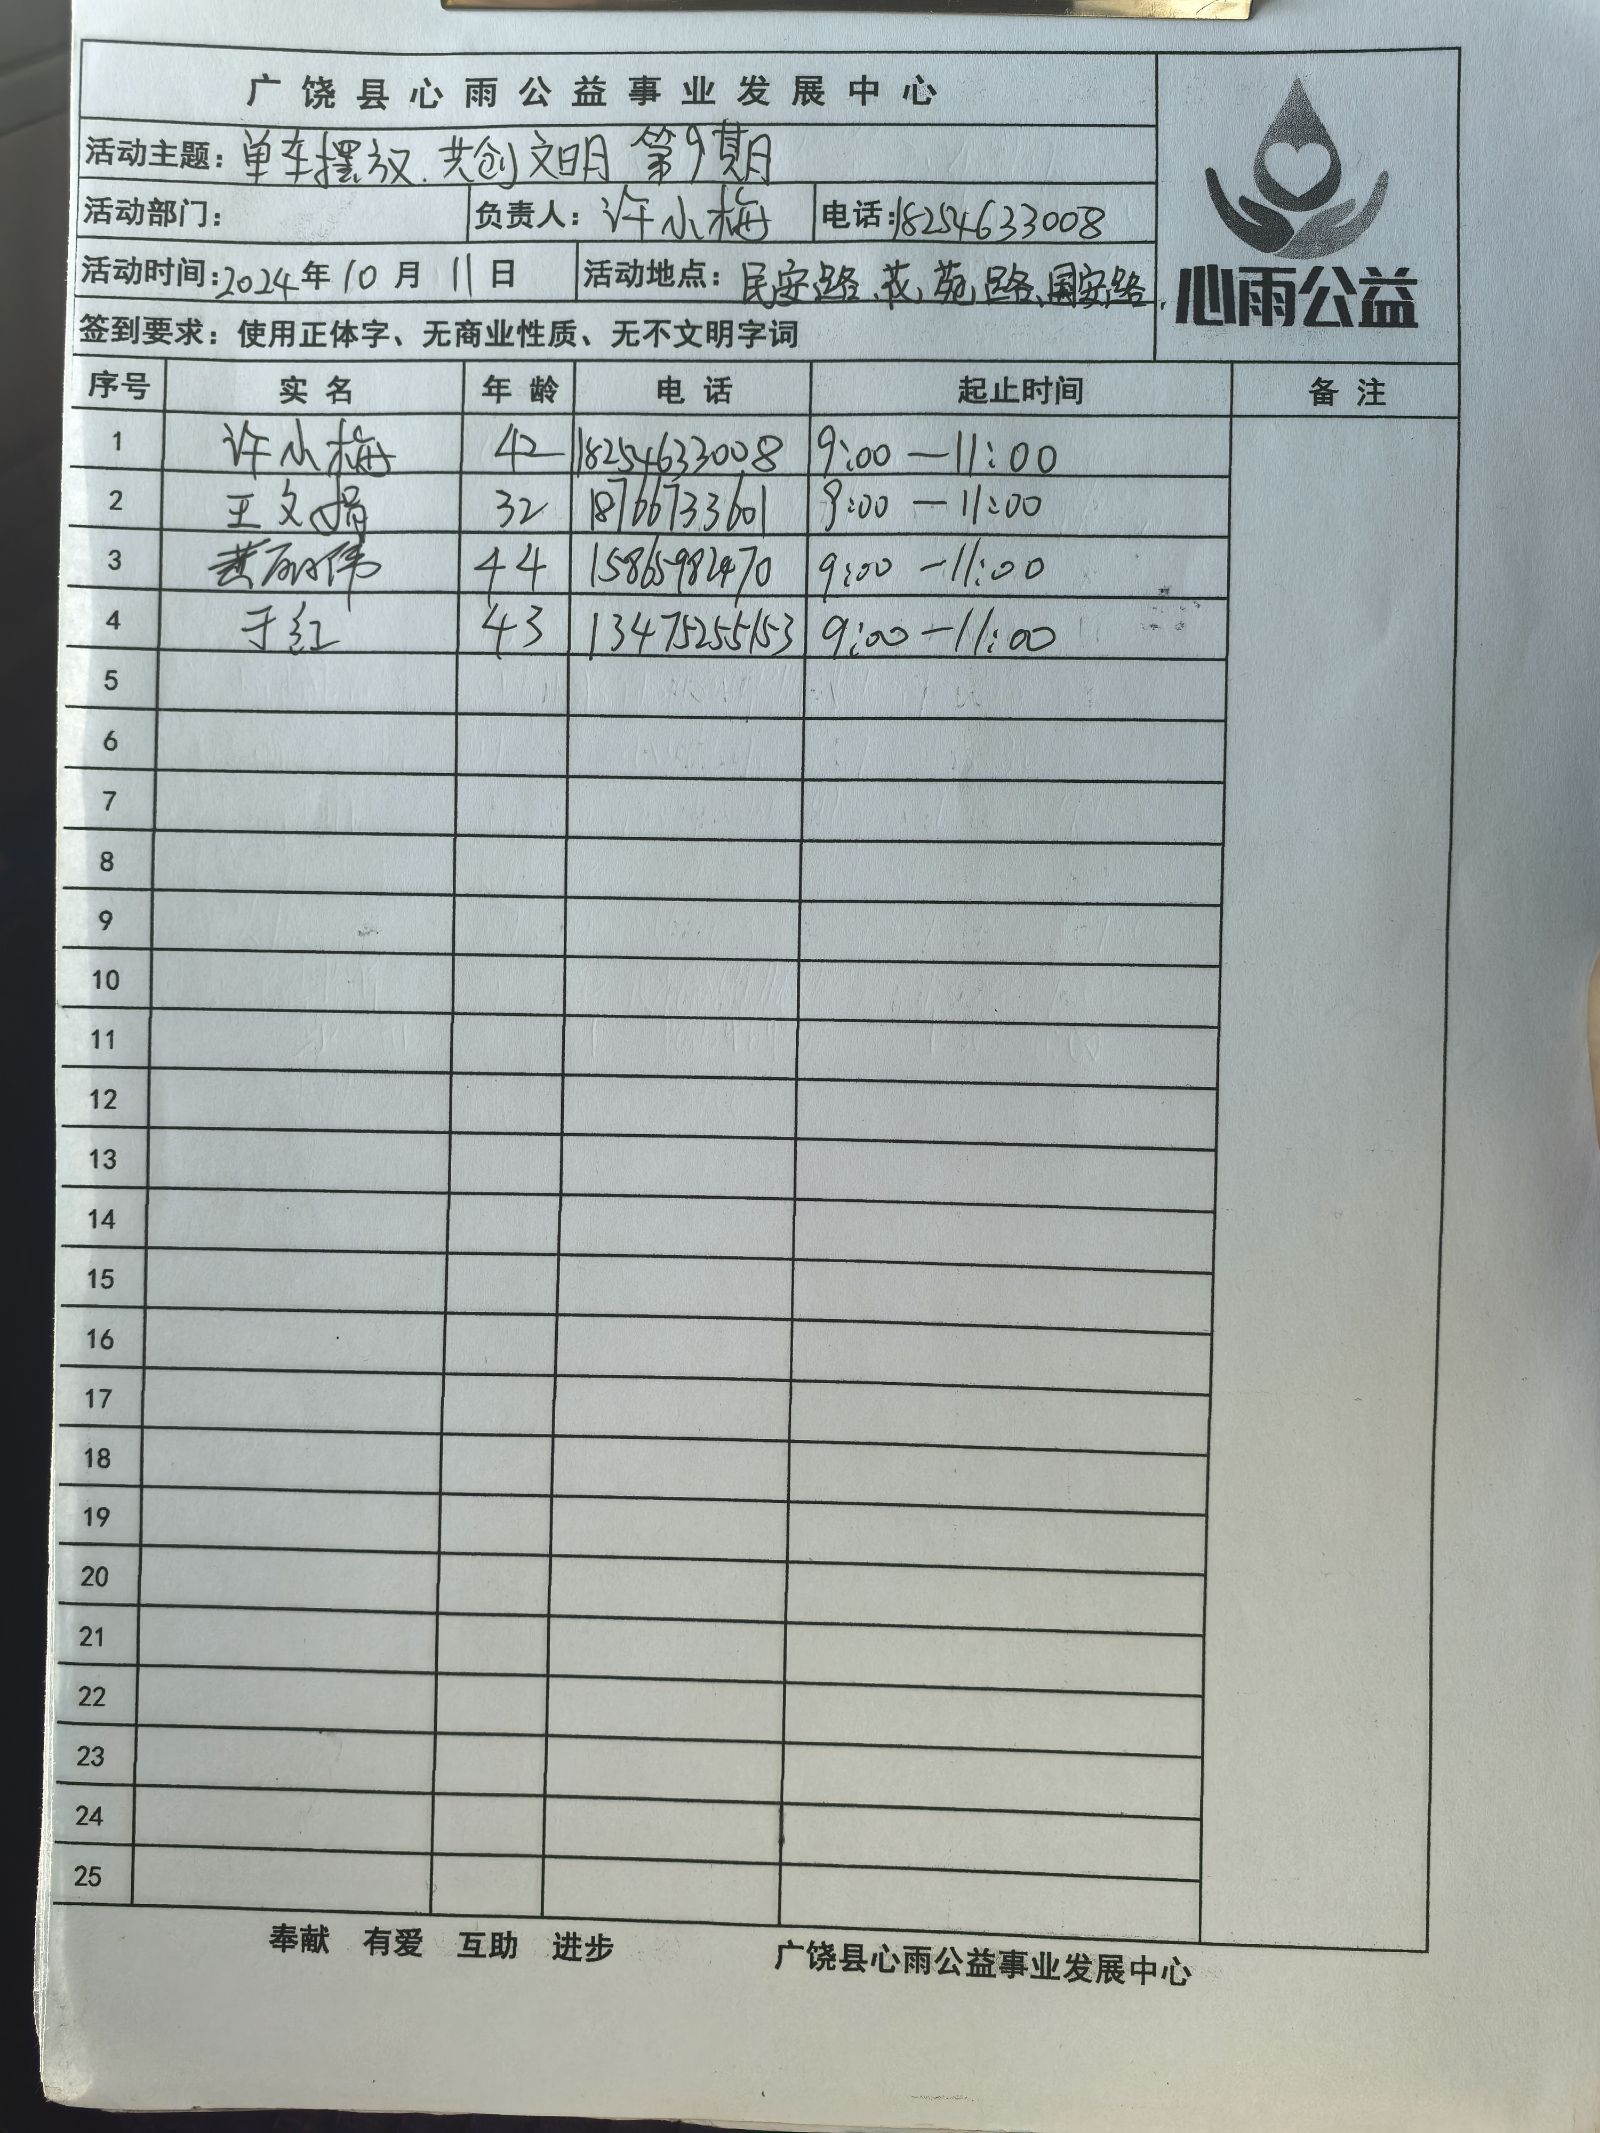 广饶县心雨公益事业发展中心
活动主题：单车摆放.共创文明 第9期
活动部门： 负责人：许小梅 电话：18254633008
活动时间：2024年10月11日 活动地点：民安路、花苑路、国安路.
心雨公益
签到要求：使用正体字、无商业性质、无不文明字词
序号 实名 年龄 电话 起止时间 备注
1 许小梅 42 18254633008 9:00—11:00
2 王文娟 32 18766733601 9:00—11:00
3 黄丽伟 44 15865982470 9:00—11:00
4 于红 43 13475255153 9:00—11:00
5
6
7
8
9
10
11
12
13
14
15
16
17
18
19
20
21
22
23
24
25
奉献 有爱 互助 进步 广饶县心雨公益事业发展中心